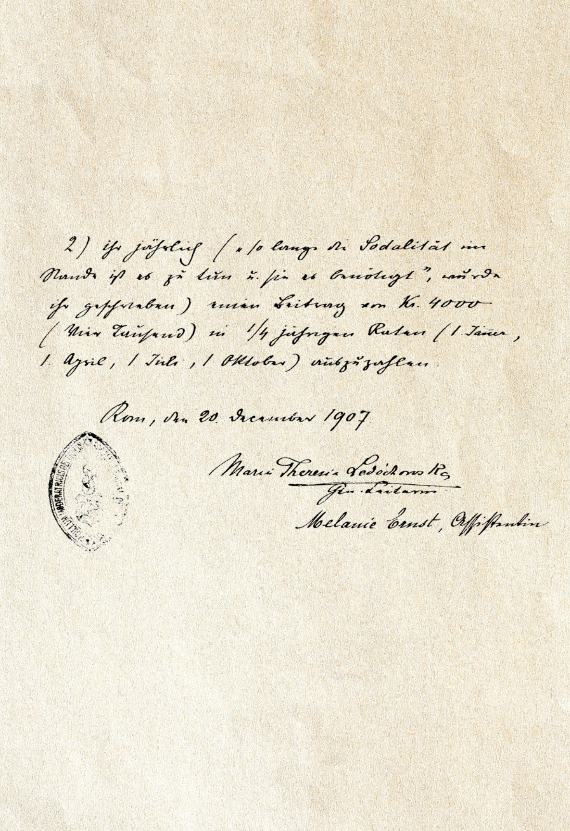 2) ihr jährlich ( „so lange die Sodalität im
Stande ist es zu tun u. sie es benötigt”, wurde
ihr geschrieben) einen Beitrag von Kr. 4000
(Vier Tausend) in 1/4 jährigen Raten (1. Jänner,
1. April, 1 Juli, 1 Oktober) auszuzahlen.
Rom, den 20. December 1907
Maria Theresia Ledóchowska
Gen. Leiterin
Melanie Ernst, Assistentin